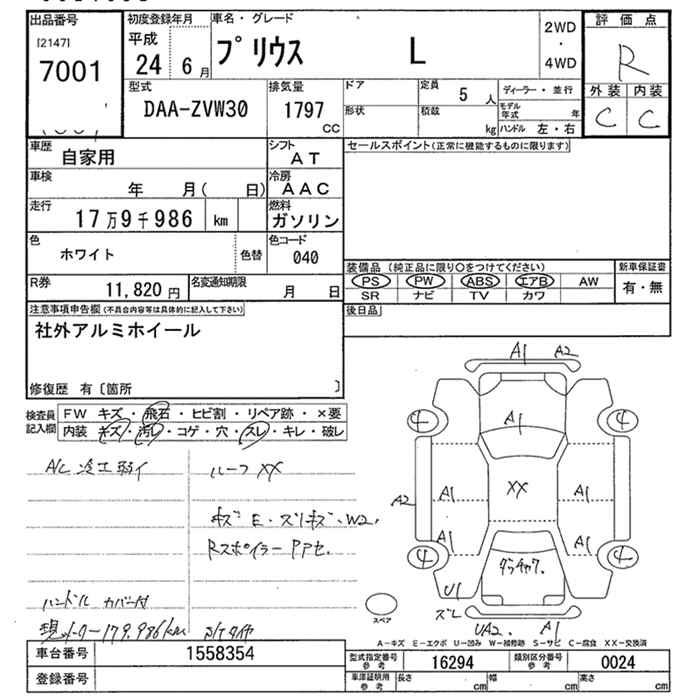 出品番号
[2147]
7001
初度登録年月
平成
24 6月
車名・グレード
プリウス L
2WD
・
4WD
評価点
R
外装 内装
C C
型式
DAA-ZVW30
排気量
1797
CC
ドア
形状
定員
5 人
積載
kg
ディーラー・並行
モデル
年式 年
ハンドル 左・右
車歴
自家用
シフト
AT
セールスポイント(正常に機能するものに限ります)
車検
年 月( 日)
冷房
AAC
走行
17万9千986 km
燃料
ガソリン
色
ホワイト
色替
色コード
040
装備品 (純正品に限り〇をつけてください)
新車保証書
PS PW ABS エアB AW
SR ナビ TV カワ
有・無
R券
11,820 円
名変通知期限
月 日
後日品
注意事項申告欄(不具合内容等は具体的に記入して下さい)
社外アルミホイール
修復歴 有〔箇所 〕
検査員
記入欄
FW キズ・飛石・ヒビ割・リペア跡・×要
内装 キズ・汚れ・コゲ・穴・スレ・キレ・破レ
A/C 冷工弱イ
ルーフ XX
キズ E・スリキズ・W2,
Rスポイラー PPセ.
ハンドル カバー付
現メーター179,986km S/Tタイヤ
A1 A2
4 A1 4
A2 A1 XX A1
A1 A1
4 ダッチャク. 4
U1
ズレ
UA2. A1
スペア
A-キズ E-エクボ U-凹み W-補修跡 S-サビ C-腐食 XX-交換済
車台番号
1558354
型式指定番号
参考
16294
類別区分番号
参考
0024
登録番号
車庫証明用
参考
長さ cm
幅 cm
高さ cm